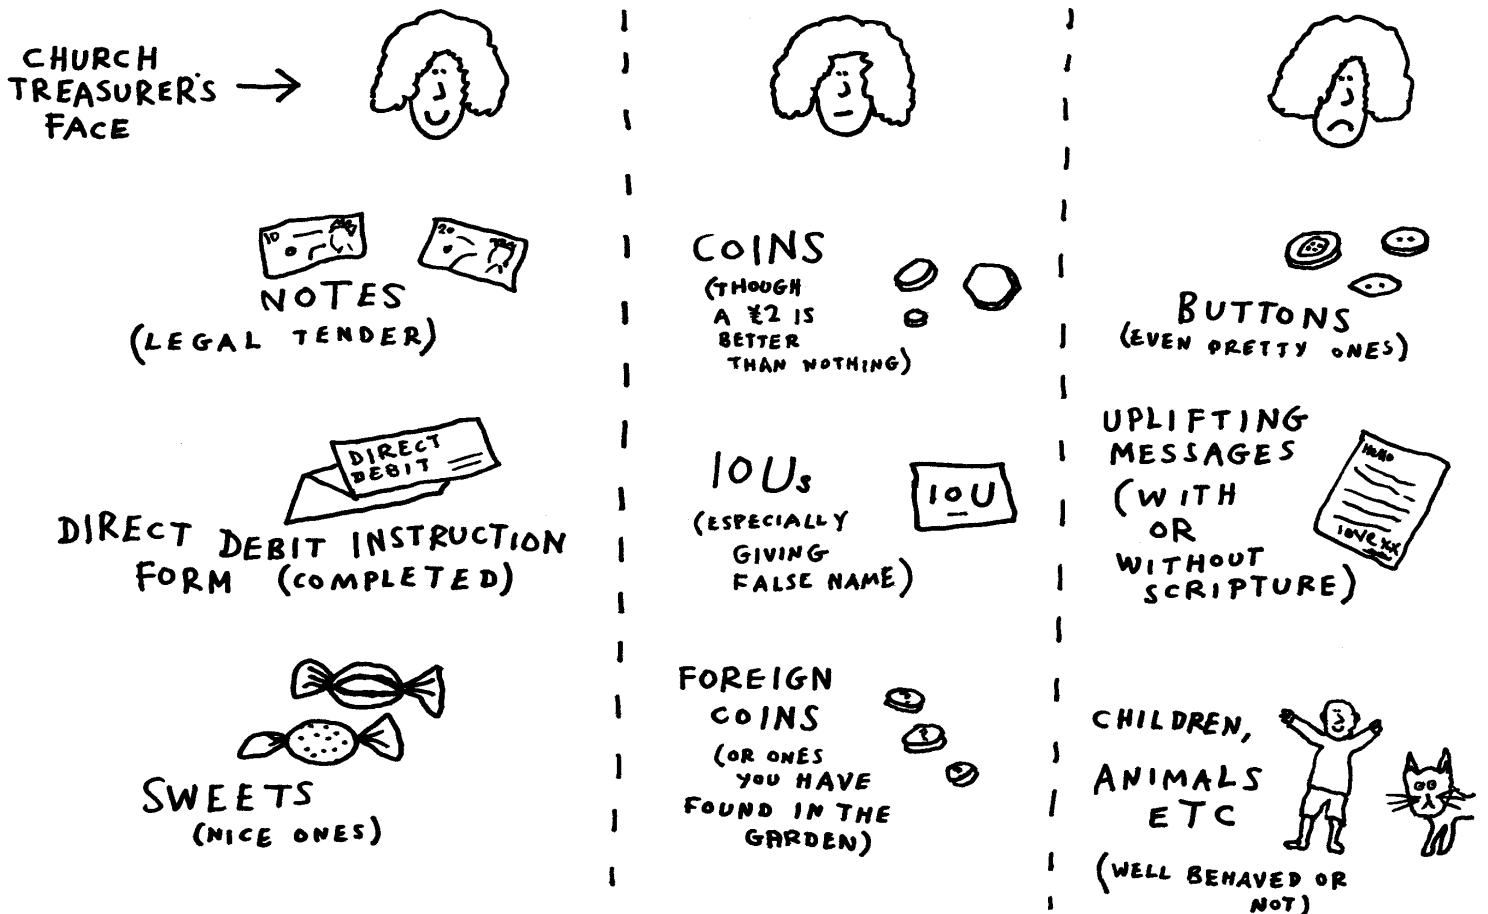 CHURCH
TREASURER'S
FACE
10
20
NOTES
(LEGAL TENDER)
DIRECT
DEBIT
DIRECT DEBIT INSTRUCTION
FORM (COMPLETED)
SWEETS
(NICE ONES)
COINS
(THOUGH
A £2 IS
BETTER
THAN NOTHING)
IOUs
(ESPECIALLY
GIVING
FALSE NAME)
IOU
FOREIGN
COINS
(OR ONES
YOU HAVE
FOUND IN THE
GARDEN)
BUTTONS
(EVEN PRETTY ONES)
UPLIFTING
MESSAGES
(WITH
OR
WITHOUT
SCRIPTURE)
Hello
love xx
CHILDREN,
ANIMALS
ETC
(WELL BEHAVED OR
NOT)